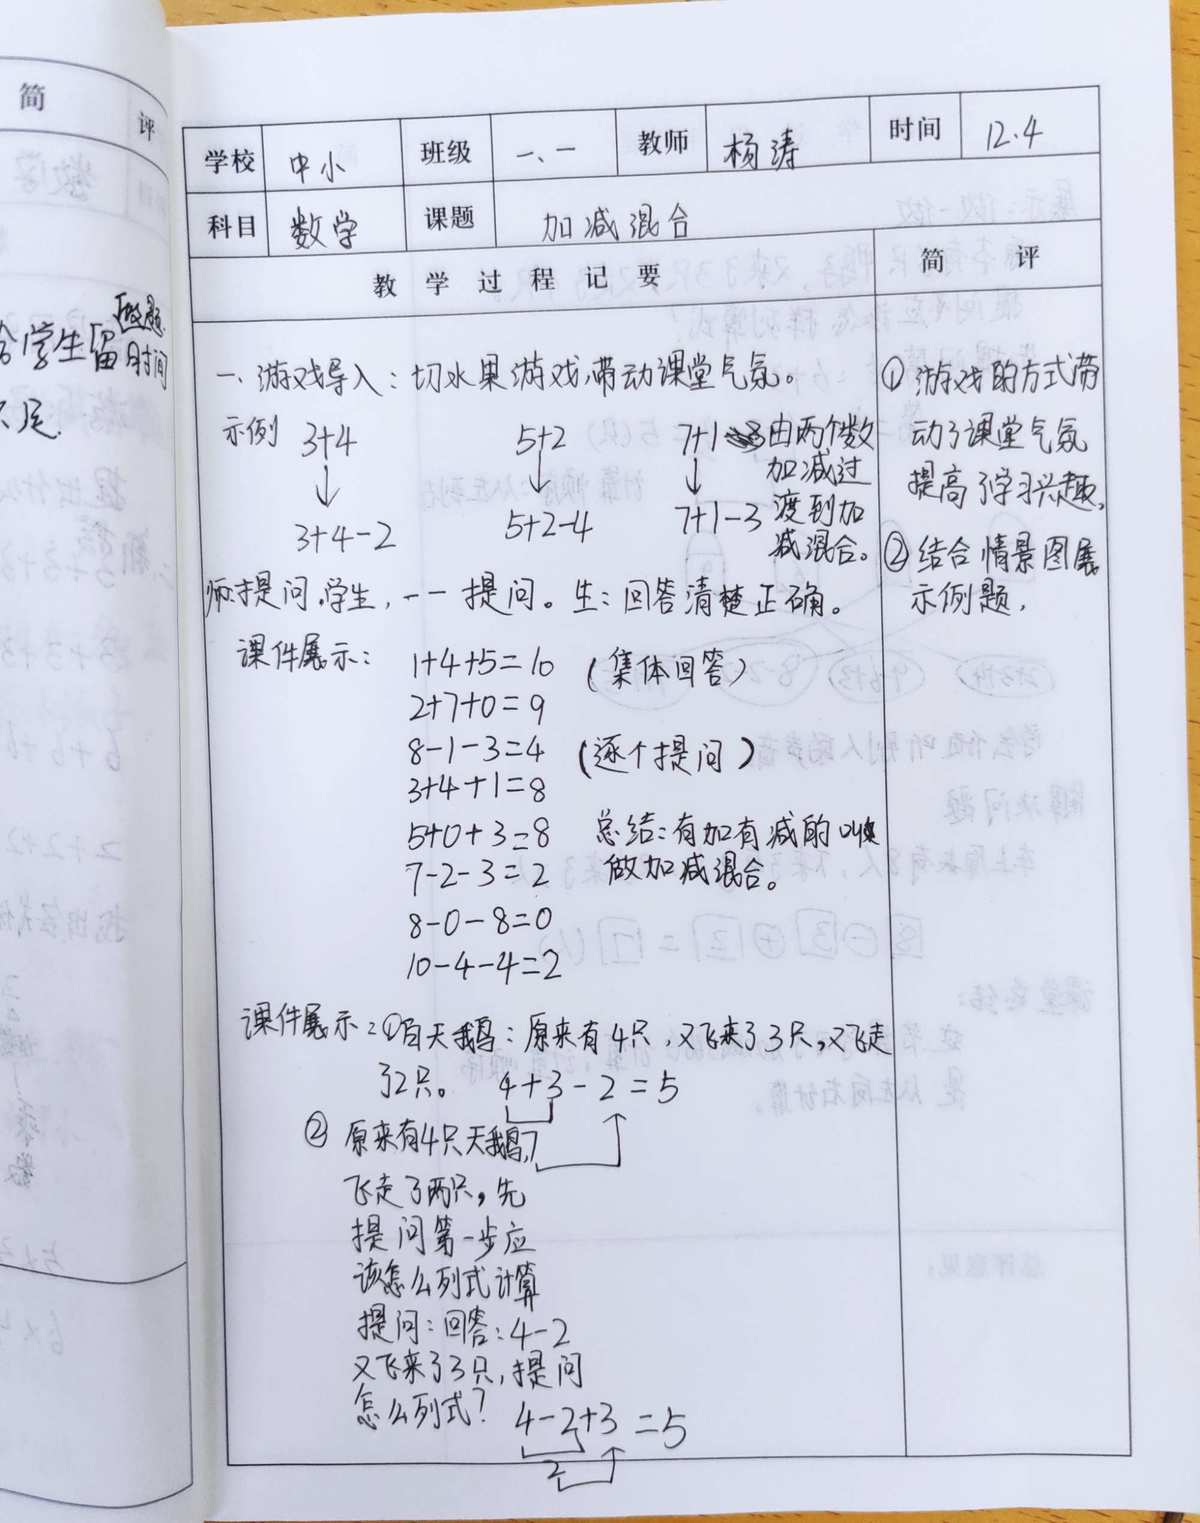 简 评
给学生留做题时间
不足.
学校 中小 班级 一、一 教师 杨涛 时间 12.4
科目 数学 课题 加减混合
教 学 过 程 记 要
简 评
一、游戏导入：切水果游戏,带动课堂气氛。
示例 3+4 5+2 7+1 由两个数
加减过
↓ ↓ ↓
3+4-2 5+2-4 7+1-3 渡到加
减混合。
师:提问,学生,一一提问。生：回答清楚正确。
课件展示：1+4+5=10 (集体回答)
2+7+0=9
8-1-3=4 (逐个提问)
3+4+1=8
5+0+3=8 总结：有加有减的叫
7-2-3=2 做加减混合。
8-0-8=0
10-4-4=2
课件展示：①白天鹅：原来有4只,又飞来了3只,又飞走
了2只。 4+3-2=5
7
② 原来有4只天鹅,
飞走了两只,先
提问第一步应
该怎么列式计算
提问：回答：4-2
又飞来了3只,提问
怎么列式? 4-2+3=5
2
① 游戏的方式带
动了课堂气氛
提高了学习兴趣,
② 结合情景图展
示例题,